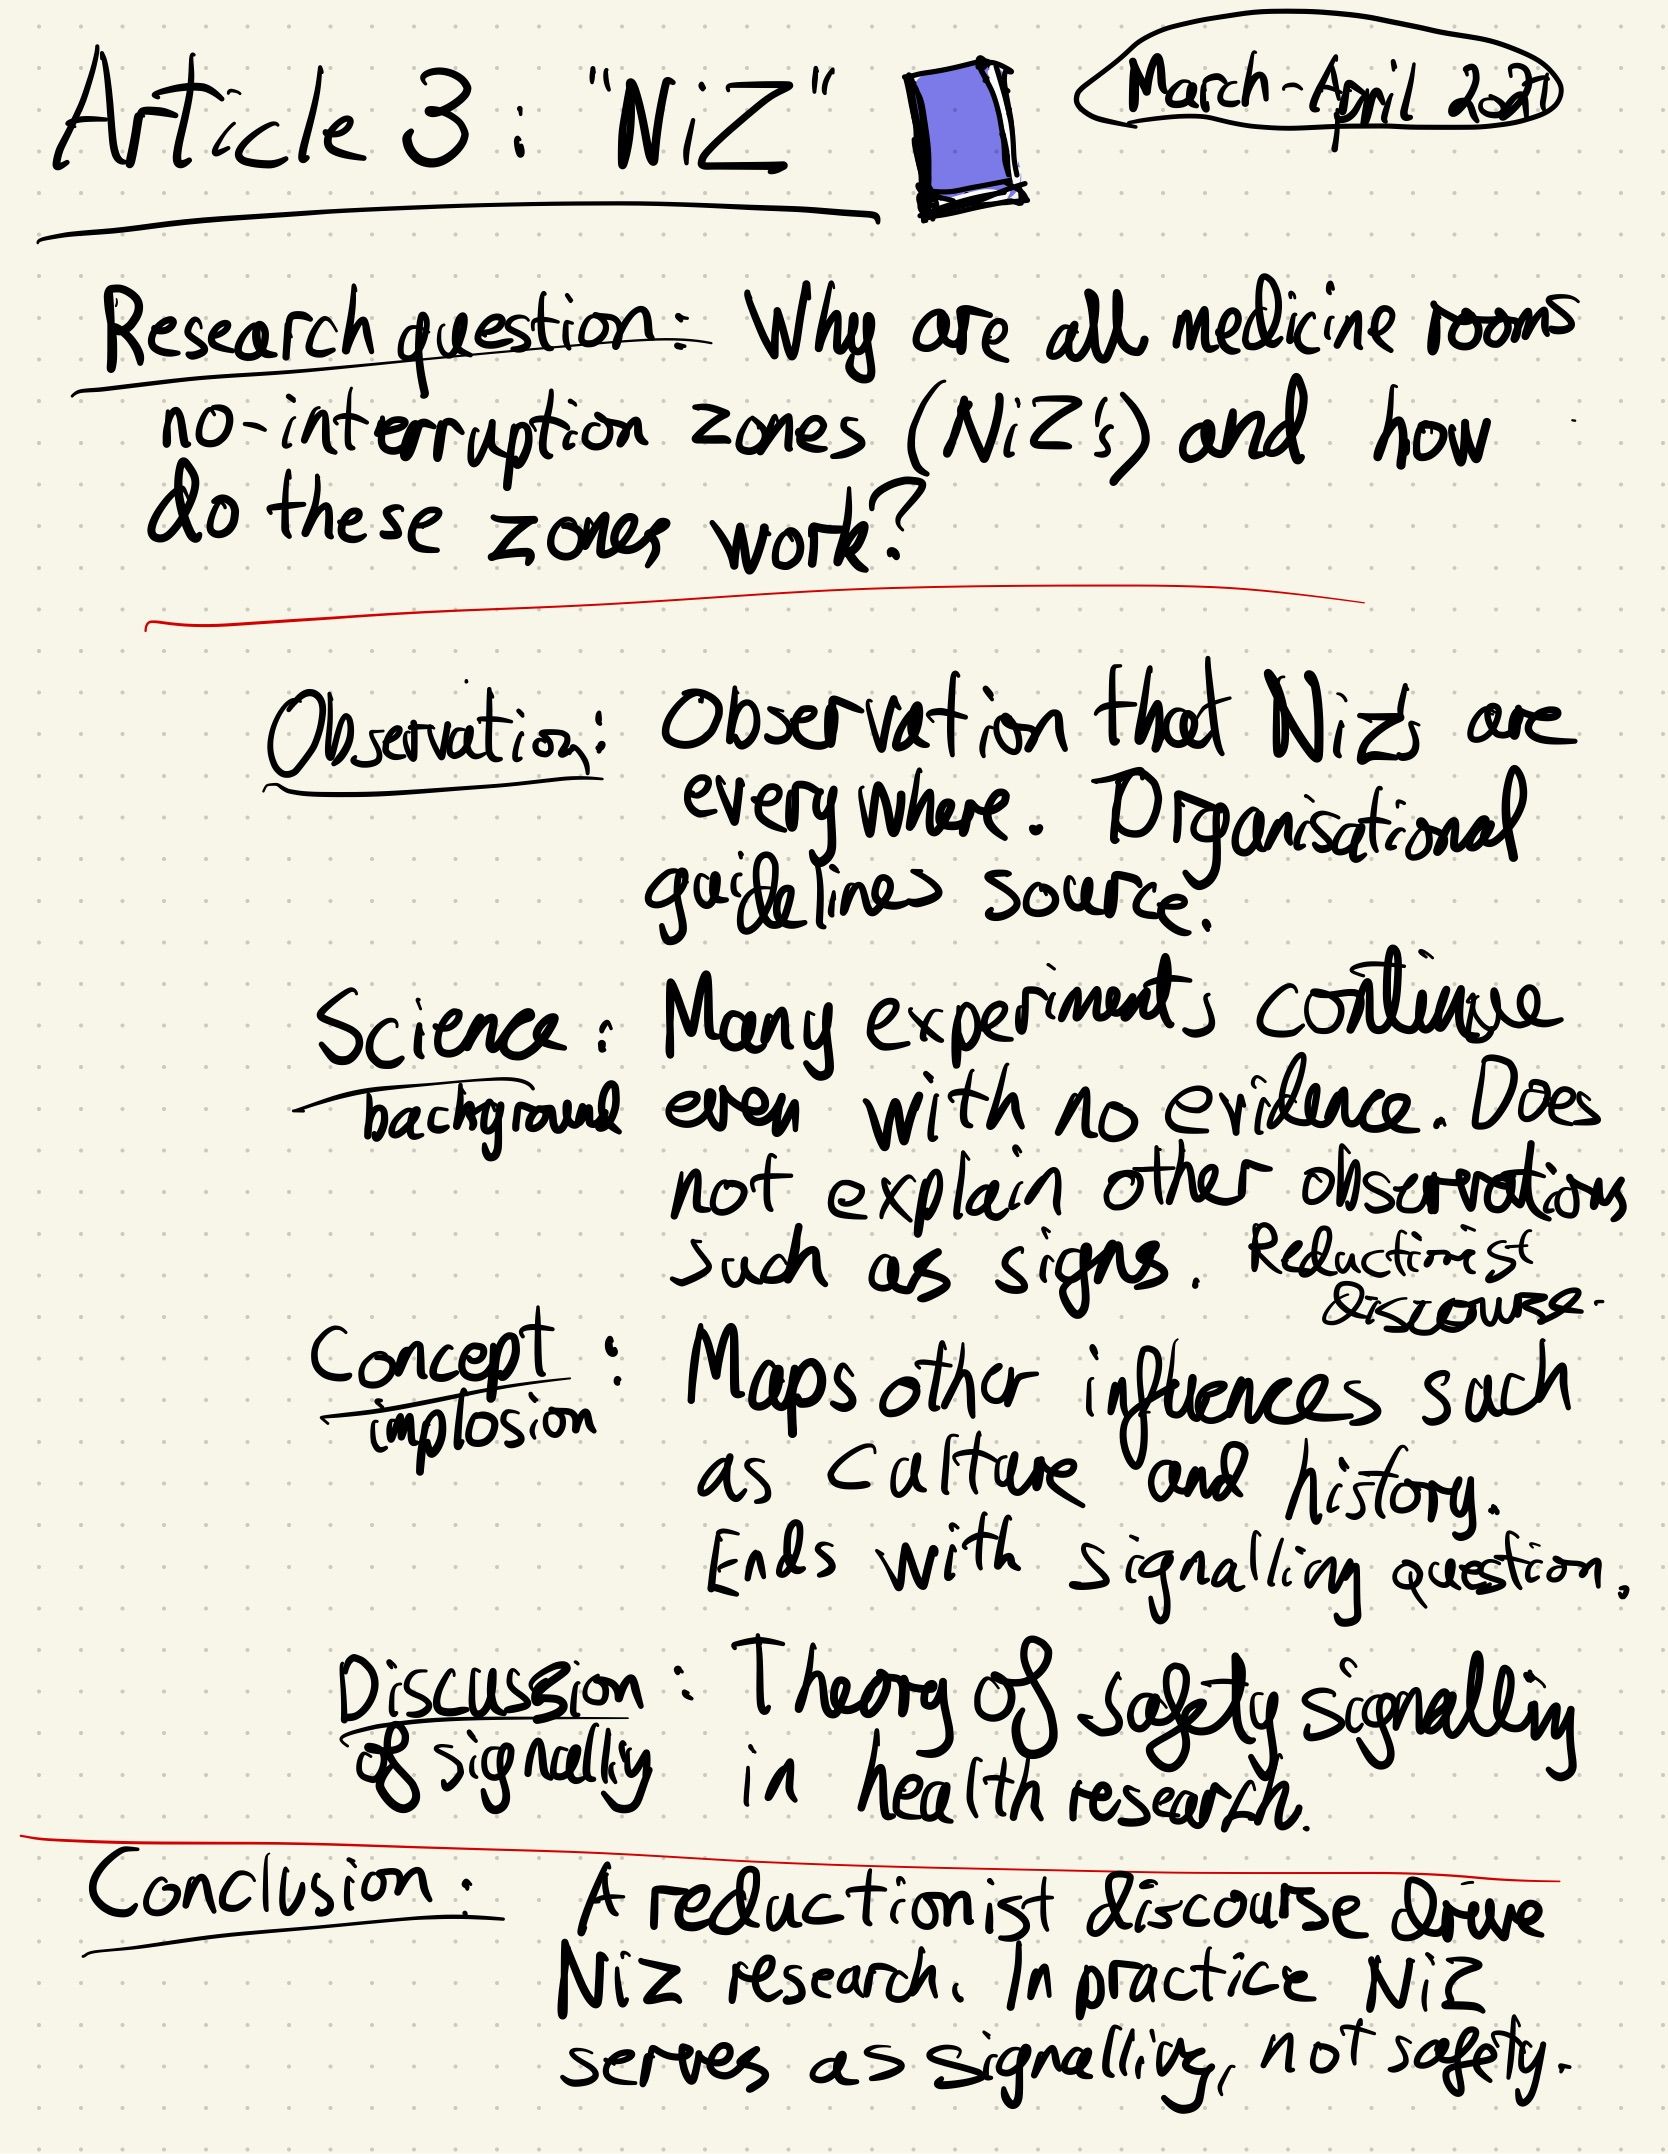 Article 3: "NiZ"
March-April 2021
Research question: Why are all medicine rooms
no-interruption zones (NiZ's) and how
do these zones work?
Observation: Observation that NiZ's are
everywhere. Organisational
guidelines source.
Science: Many experiments continue
background even with no evidence. Does
not explain other observations
such as signs. Reductionist
discourse.
Concept: Maps other influences such
implosion as culture and history.
Ends with signalling question.
Discussion: Theory of safety signalling
of signally in health research.
Conclusion: A reductionist discourse drive
NiZ research. In practice NiZ
serves as signalling, not safety.